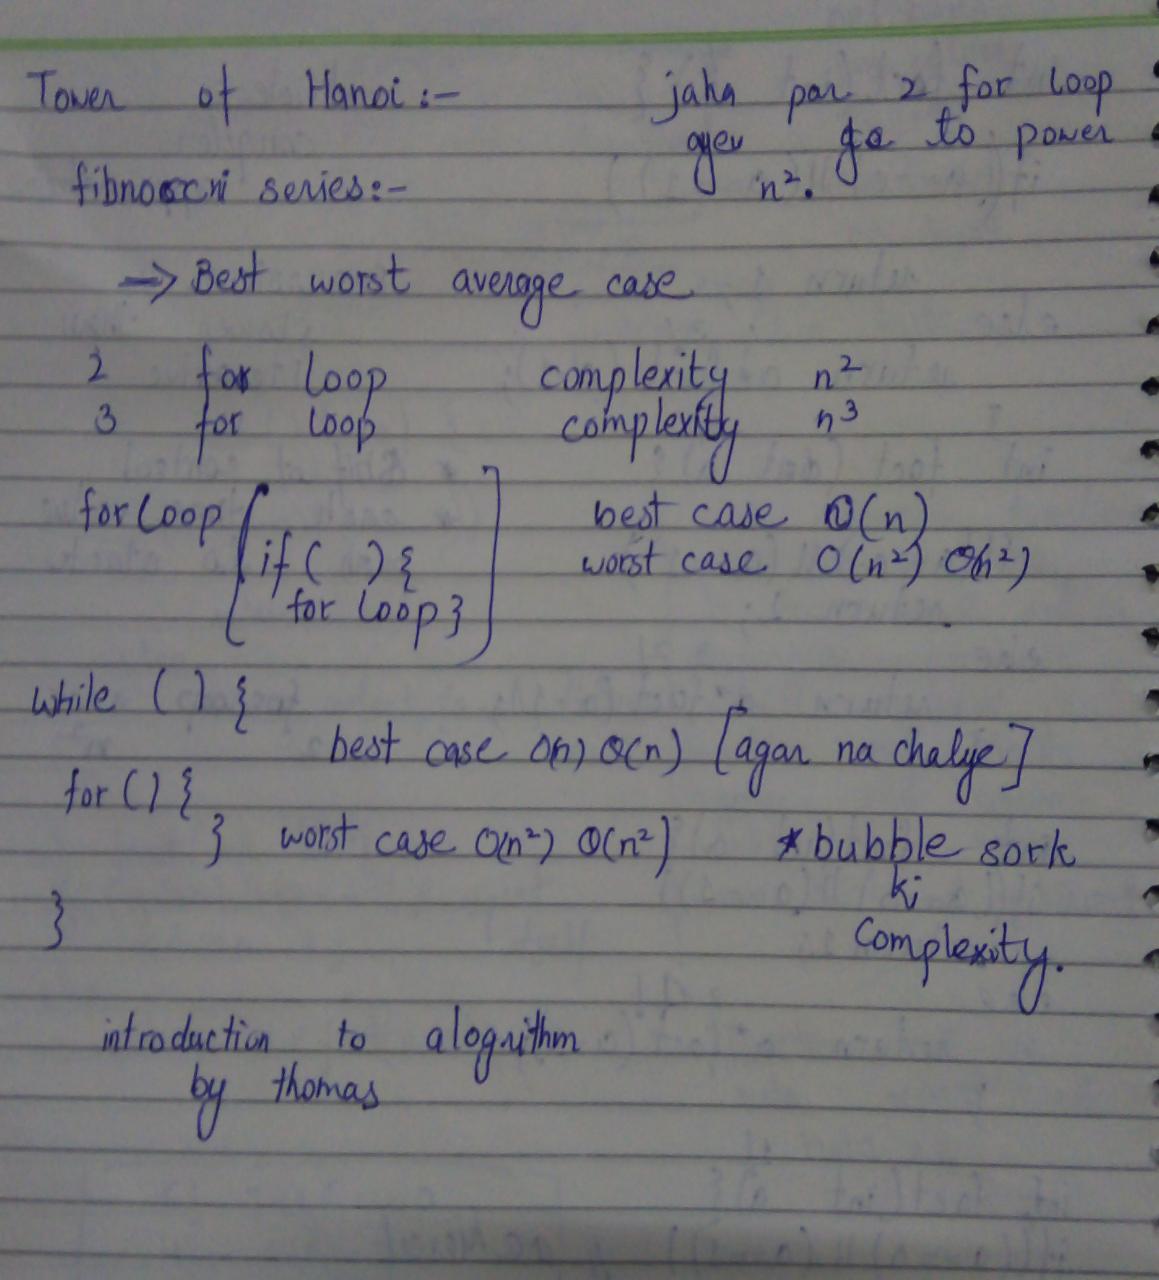 Tower of Hanoi :-
jaha par 2 for loop
ayeu ga to power
n².
fibnoocni series:-
⇒ Best worst average case
2 for loop complexity n²
3 for loop complexity n³
for loop
if ( ) {
for loop }
best case O(n)
worst case O(n²) O(n²)
while ( ) {
best case O(n) O(n) [agar na chalye]
for ( ) {
} worst case O(n²) O(n²]
* bubble sork
ki
Complexity.
}
introduction to alogrithm
by thomas